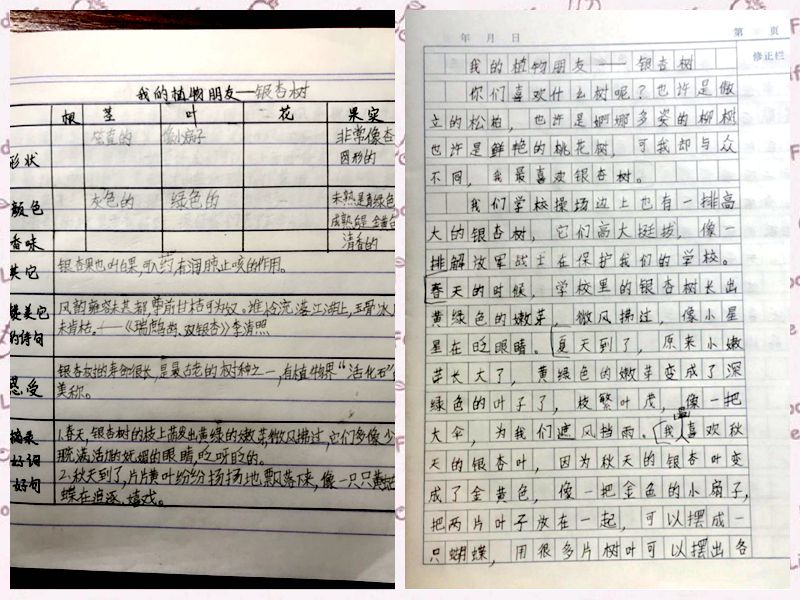 我的植物朋友——银杏树
根 茎 叶 花 果实
形状 笔直的 像小扇子 非常像杏
圆形的
颜色 灰色的 绿色的 未熟是青绿色
成熟后是金黄色
香味 清香的
其它 银杏果也叫白果,可入药,有润肺止咳的作用。
赞美它的诗句 风韵雍容未甚都,尊前甘桔可为奴。谁怜流落江湖上,玉骨冰
未肯枯。——《瑞鹧鸪·双银杏》李清照
感受 银杏树的寿命很长,是最古老的树种之一,有植物界“活化石”
美称。
摘录好词好句 1.春天,银杏树的枝上萌发出黄绿的嫩芽,微风拂过,它们多像少
脱满活力的妩媚的眼睛眨呀眨的。
2.秋天到了,片片黄叶纷纷扬扬地飘落下来,像一只只黄
蝶在追逐、嬉戏。
年 月 日 第 页
修正栏
我的植物朋友——银杏树
你们喜欢什么树呢?也许是傲
立的松柏,也许是婀娜多姿的柳树
也许是鲜艳的桃花树,可我却与众
不同,我最喜欢银杏树。
我们学校操场边上也有一排高
大的银杏树,它们高大挺拔,像一
排解放军战士在保护我们的学校。
春天的时候,学校里的银杏树长出
黄绿色的嫩芽,微风拂过,像小星
星在眨眼睛。夏天到了,原来小嫩
芽长大了,黄绿色的嫩芽变成了深
绿色的叶子了,枝繁叶茂,像一把
大伞,为我们遮风挡雨。我最喜欢秋
天的银杏叶,因为秋天的银杏叶变
成了金黄色,像一把金色的小扇子,
把两片叶子放在一起,可以摆成一
只蝴蝶,用很多片树叶可以摆出各